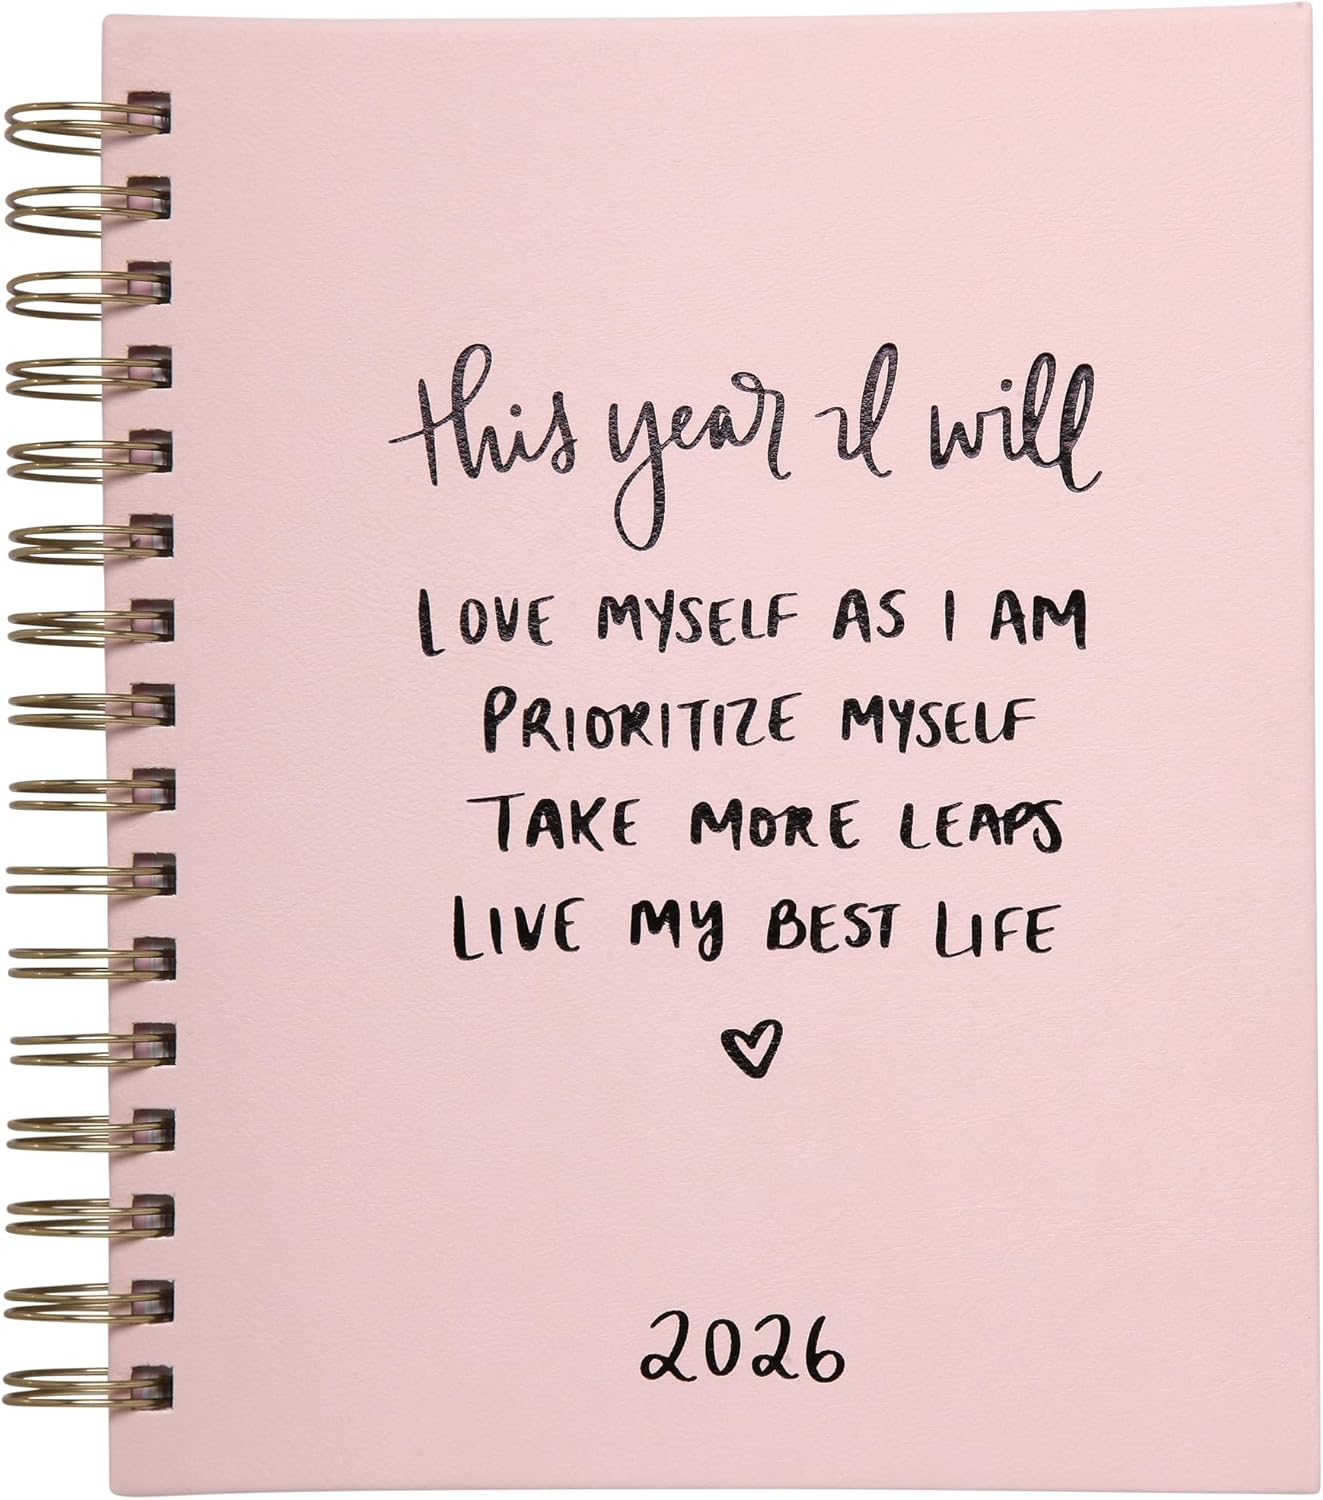 this year I will
LOVE MYSELF AS I AM
PRIORITIZE MYSELF
TAKE MORE LEAPS
LIVE MY BEST LIFE
2026